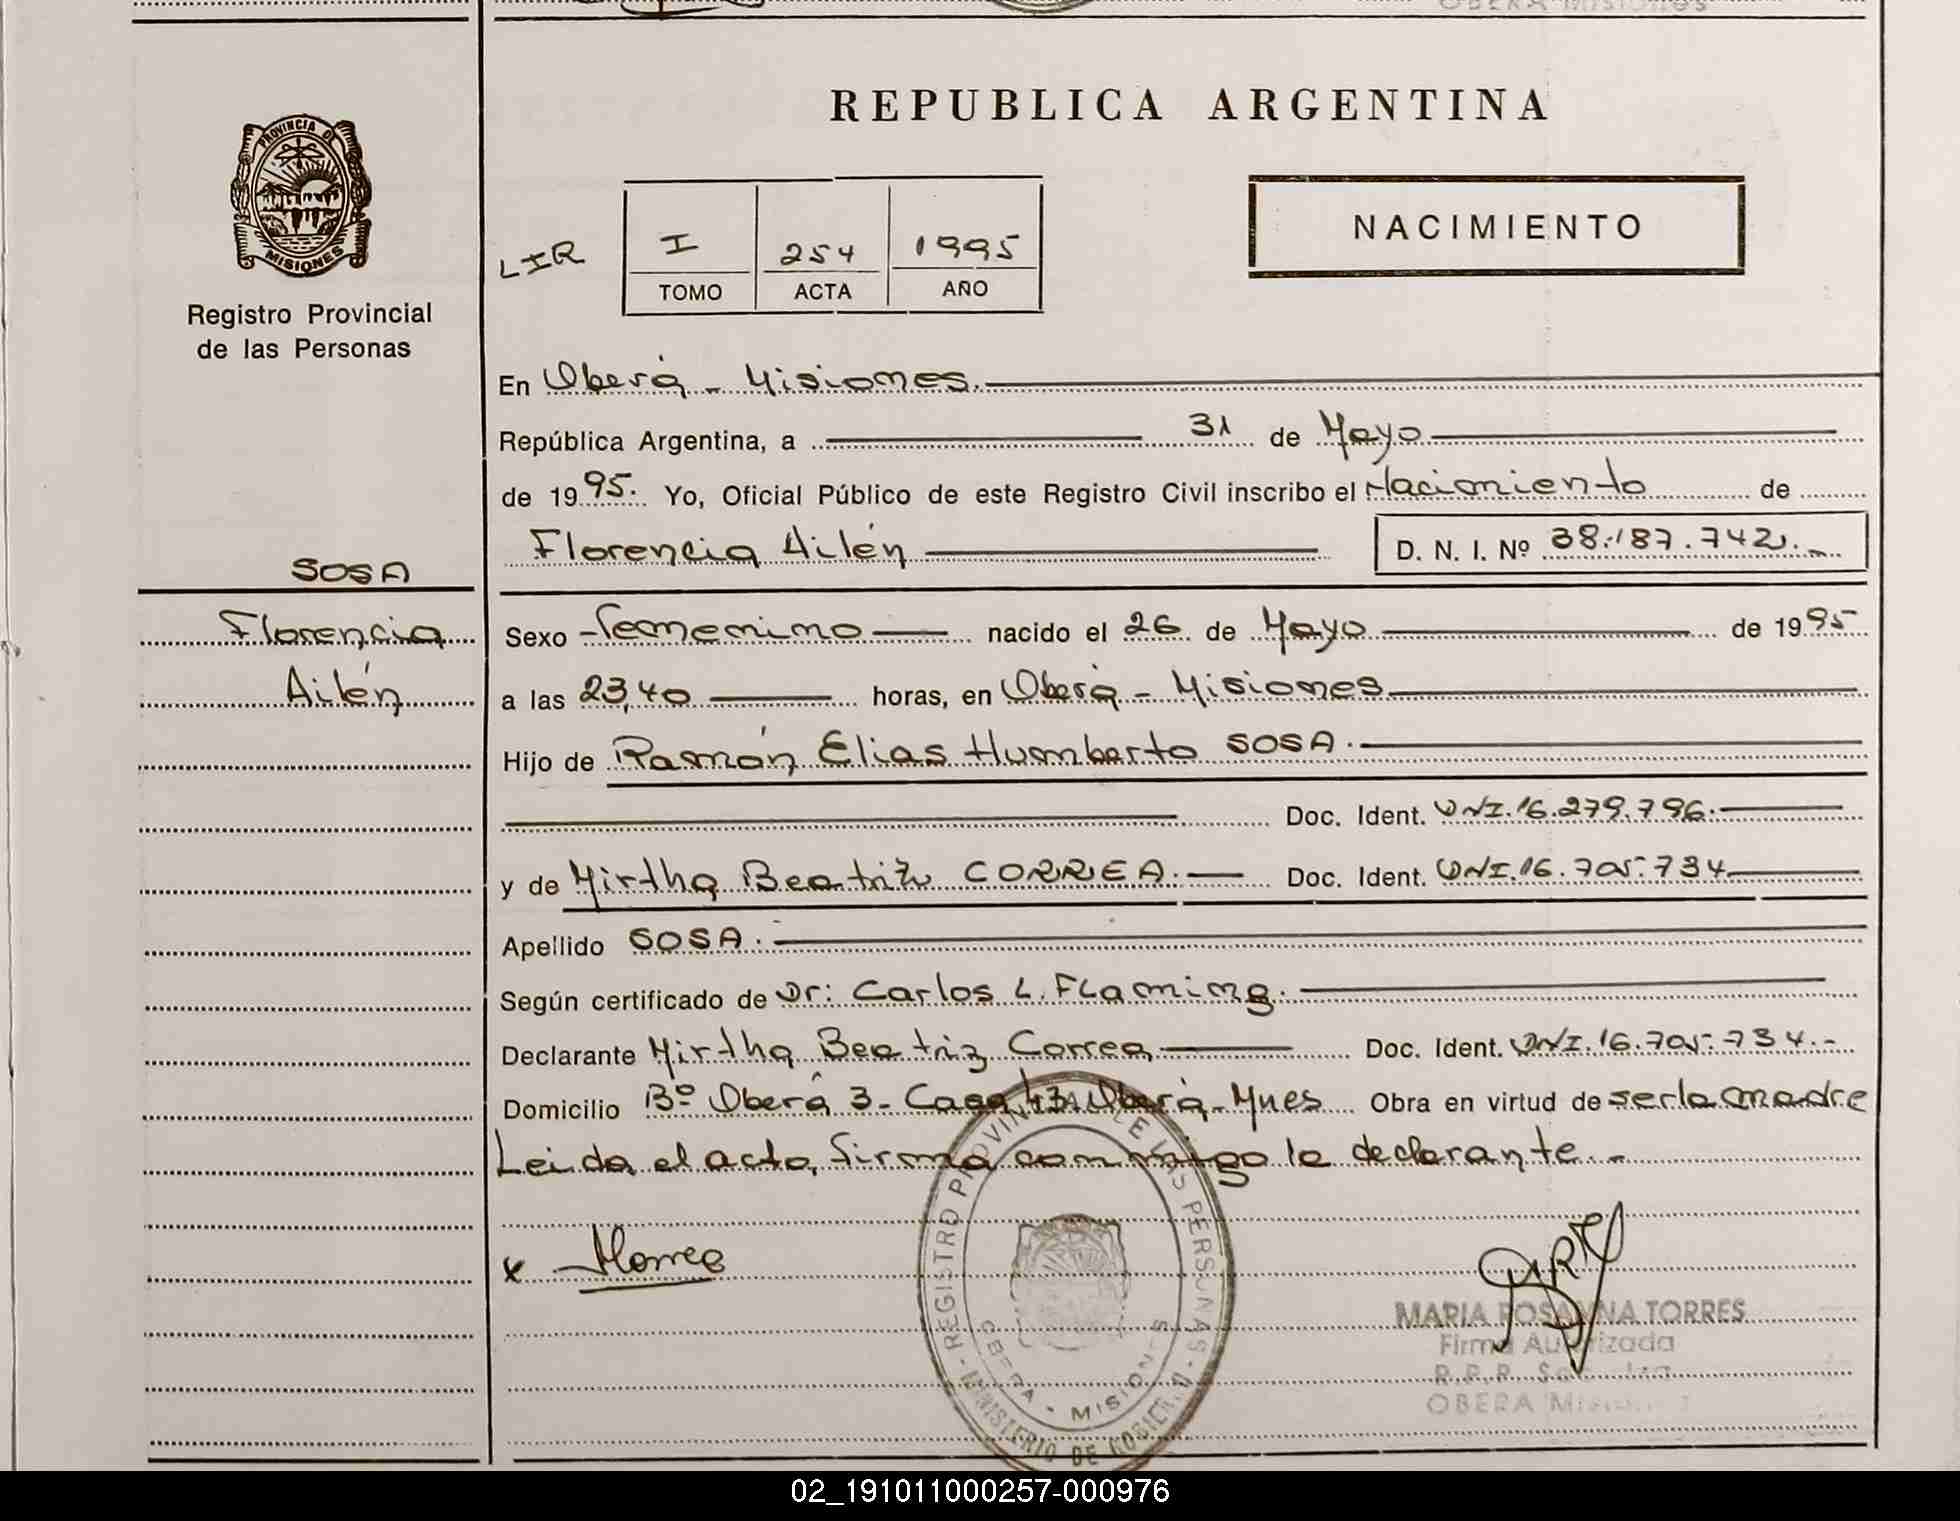 OBERA MISIONES
REPUBLICA ARGENTINA
PROVINCIA DE
MISIONES
Registro Provincial
de las Personas
LIR
I 254 1995
TOMO ACTA AÑO
NACIMIENTO
En Oberá - Misiones.
República Argentina, a 31 de Mayo
de 1995. Yo, Oficial Público de este Registro Civil inscribo el Nacimiento de
Florencia Ailén D. N. I. Nº 38.187.742.-
SOSA
Florencia
Ailén
Sexo Femenino nacido el 26 de Mayo de 1995
a las 23,40 horas, en Oberá - Misiones
Hijo de Ramón Elias Humberto SOSA.
Doc. Ident. DNI.16.279.796.
y de Mirtha Beatriz CORREA. Doc. Ident. DNI.16.705.734
Apellido SOSA.
Según certificado de Dr: Carlos L. Flaming.
Declarante Mirtha Beatriz Correa Doc. Ident. DNI.16.705.734.-
Domicilio Bº Oberá 3- Casa 43. Oberá - Mnes Obra en virtud de ser la madre
Leida el acta, firma conmigo la declarante.-
x
REGISTRO PROVINCIAL DE LAS PERSONAS
OBERA - MISIONES
MINISTERIO DE GOBIERNO
MARIA ROSANNA TORRES
Firma Autorizada
R.P.P.
OBERA Misiones
02_191011000257-000976